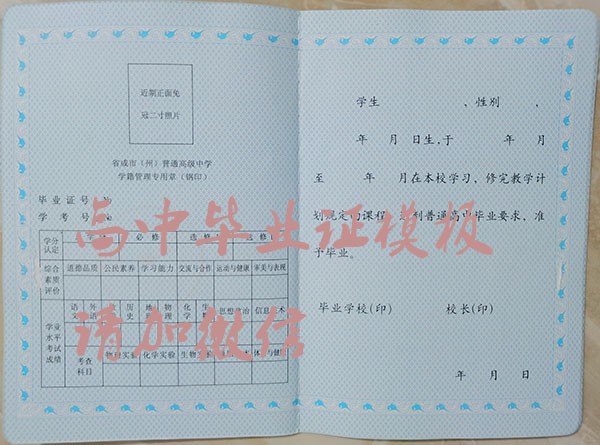 近期正面免
冠二寸照片
省或市（州）普通高级中学
学籍管理专用章（钢印）
毕业证号 №
学考号 №
学分
认定
必修
选修
综合
素质
评价
道德品质
公民素养
学习能力
交流与合作
运动与健康
审美与表现
学业
水平
考试
成绩
语文
外语
历史
地理
物理
化学
生物
思想政治
信息技术
考查
科目
物理实验
化学实验
生物实验
体育与健康
学生 ，性别 ，
年 月 日生,于 年 月
至 年 月在本校学习，修完教学计
划规定的课程，达到普通高中毕业要求，准
予毕业。
毕业学校(印) 校长(印)
年 月 日
高中毕业证模板
请加微信